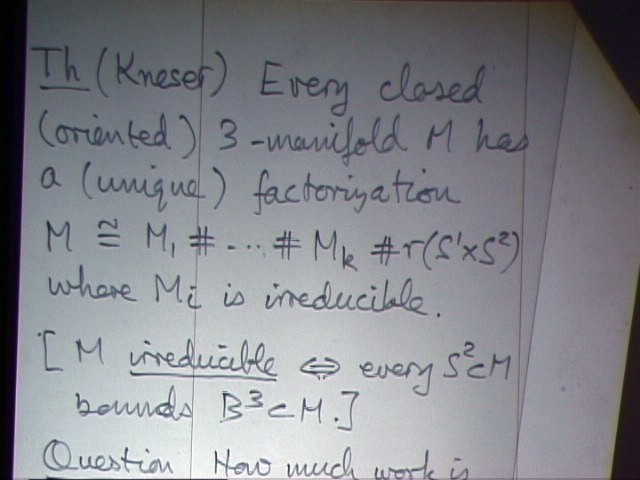 Th (Kneser) Every closed
(oriented) 3-manifold M has
a (unique) factorization
M ≅ M₁ # ... # Mₖ # r(S¹×S²)
where Mᵢ is irreducible.
[ M irreducible ⇔ every S²⊂M
bounds B³⊂M.]
Question How much work is